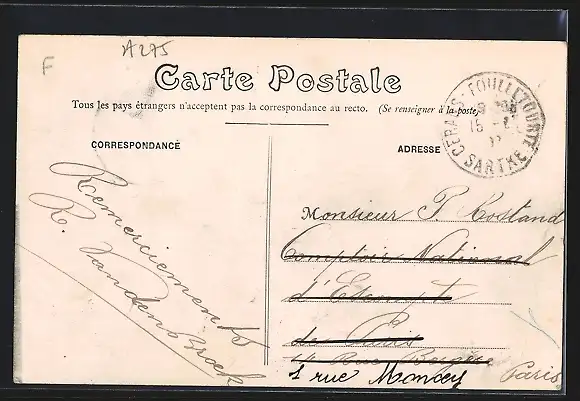 F
A275
Carte Postale
Tous les pays étrangers n'acceptent pas la correspondance au recto. (Se renseigner à la poste)
CORRESPONDANCE
Remerciements
R. Vandenbroeck
ADRESSE
CERANS-FOULLETOURTE
15
SARTHE
Monsieur P. Rostand
Comptoir National
d'Escompte
de Paris
14 Rue Bergère
1 rue Moncey Paris